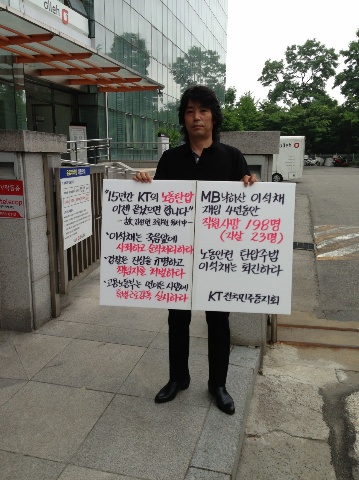 olleh
"15년간 KT의 노동탄압
이젠 끝났으면 합니다"
- 故 김성현 조합원 유서 中 -
· 이석채는 죽음앞에
사죄하고 유족처리하라
· 검찰은 진상을 규명하고
책임자를 처벌하라
· 고용노동부는 연이은 사망에
특별근로감독 실시하라
MB낙하산 이석채
재임 4년동안
직원사망 198명
(자살 23명)
노동인권 탄압주범
이석채는 퇴진하라
KT 전국민주동지회